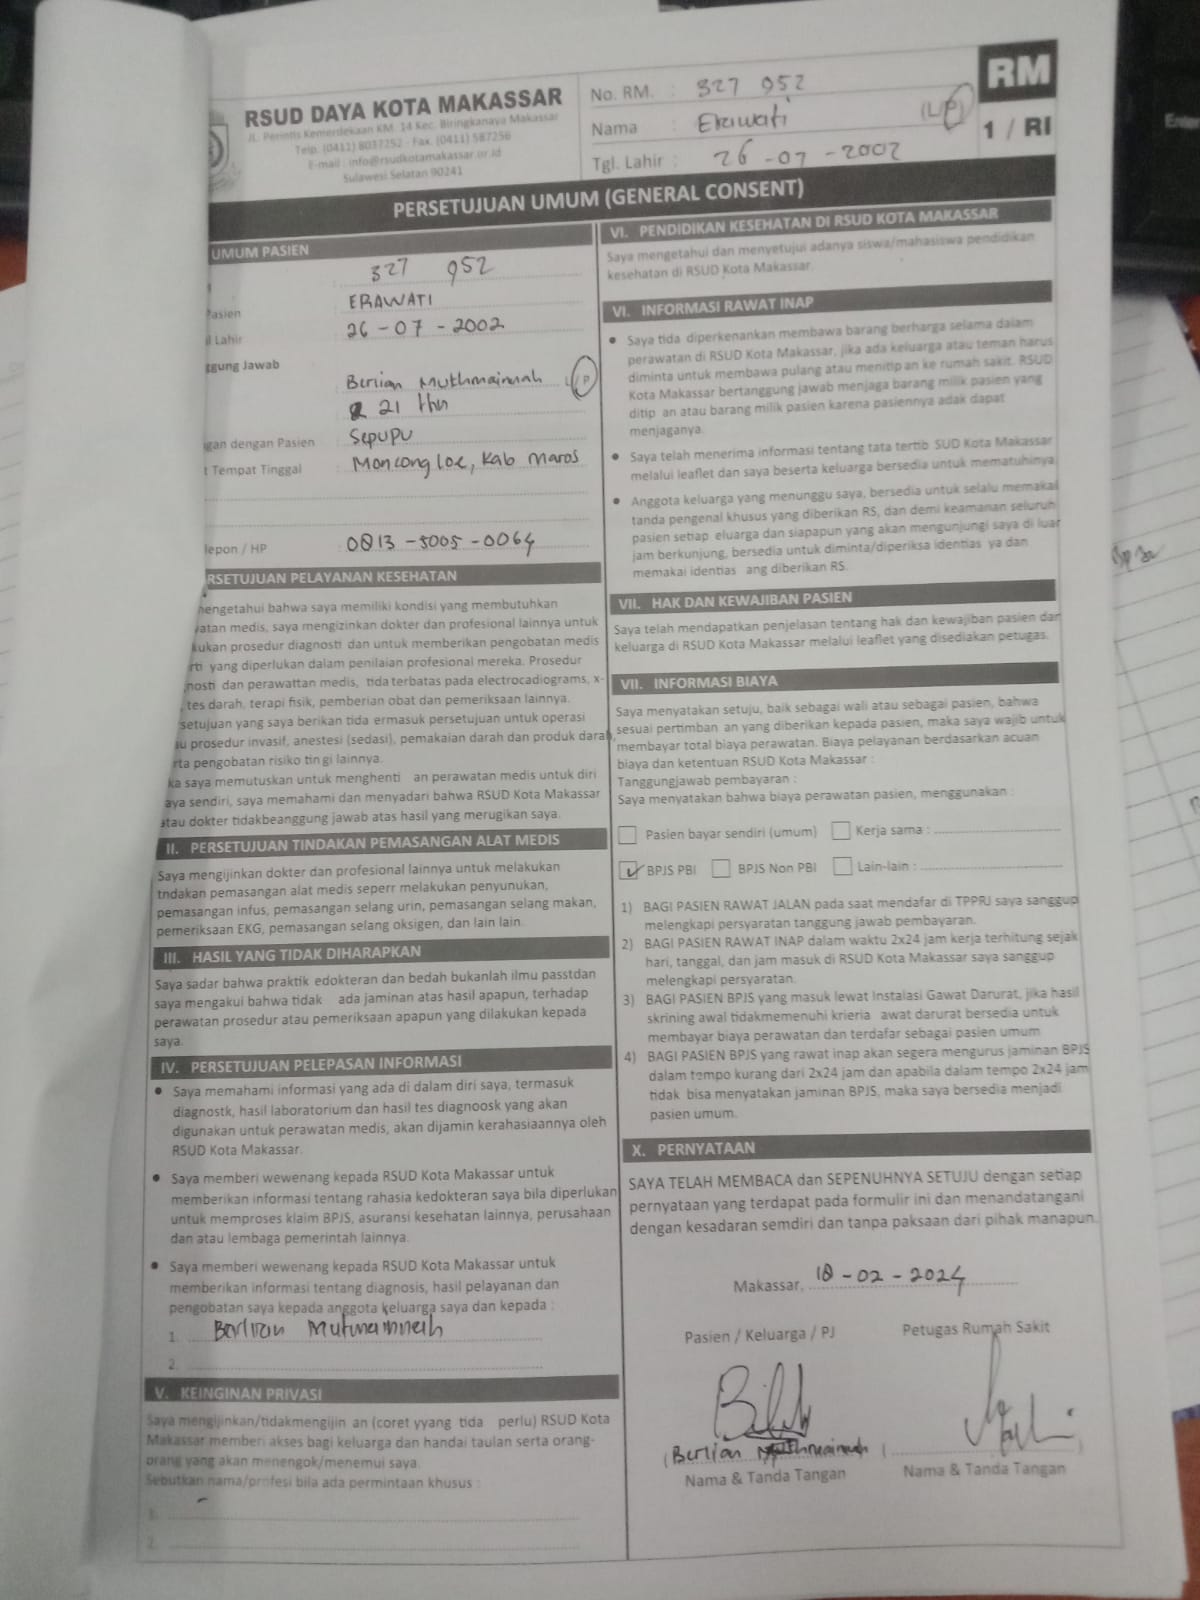 RSUD DAYA KOTA MAKASSAR
JL. Perintis Kemerdekaan KM. 14 Kec. Biringkanaya Makassar
Telp. (0411) 8037252 - Fax. (0411) 587256
E-mail : info@rsudkotamakassar.or.id
Sulawesi Selatan 90241
No. RM. : 327 952
Nama : Erawati (L/P)
Tgl. Lahir : 26 -07 -2002
RM
1 / RI
PERSETUJUAN UMUM (GENERAL CONSENT)
UMUM PASIEN
: 327 952
Pasien : ERAWATI
l Lahir : 26 -07 - 2002
ggung Jawab
: Berlian Muthmainnah L/P
: 21 thn
ngan dengan Pasien : Sepupu
t Tempat Tinggal : Moncong loe, Kab Maros
lepon / HP : 0813 -5005 -0064
RSETUJUAN PELAYANAN KESEHATAN
mengetahui bahwa saya memiliki kondisi yang membutuhkan
watan medis, saya mengizinkan dokter dan profesional lainnya untuk
kukan prosedur diagnosti dan untuk memberikan pengobatan medis
rti yang diperlukan dalam penilaian profesional mereka. Prosedur
gnosti dan perawattan medis, tida terbatas pada electrocadiograms, x-
, tes darah, terapi fisik, pemberian obat dan pemeriksaan lainnya.
setujuan yang saya berikan tida ermasuk persetujuan untuk operasi
au prosedur invasif, anestesi (sedasi), pemakaian darah dan produk darah,
rta pengobatan risiko tin gi lainnya.
ka saya memutuskan untuk menghenti an perawatan medis untuk diri
aya sendiri, saya memahami dan menyadari bahwa RSUD Kota Makassar
atau dokter tidakbeanggung jawab atas hasil yang merugikan saya.
II. PERSETUJUAN TINDAKAN PEMASANGAN ALAT MEDIS
Saya mengijinkan dokter dan profesional lainnya untuk melakukan
tndakan pemasangan alat medis seperr melakukan penyunukan,
pemasangan infus, pemasangan selang urin, pemasangan selang makan,
pemeriksaan EKG, pemasangan selang oksigen, dan lain lain.
III. HASIL YANG TIDAK DIHARAPKAN
Saya sadar bahwa praktik edokteran dan bedah bukanlah ilmu passtdan
saya mengakui bahwa tidak ada jaminan atas hasil apapun, terhadap
perawatan prosedur atau pemeriksaan apapun yang dilakukan kepada
saya.
IV. PERSETUJUAN PELEPASAN INFORMASI
• Saya memahami informasi yang ada di dalam diri saya, termasuk
diagnostk, hasil laboratorium dan hasil tes diagnoosk yang akan
digunakan untuk perawatan medis, akan dijamin kerahasiaannya oleh
RSUD Kota Makassar.
• Saya memberi wewenang kepada RSUD Kota Makassar untuk
memberikan informasi tentang rahasia kedokteran saya bila diperlukan
untuk memproses klaim BPJS, asuransi kesehatan lainnya, perusahaan
dan atau lembaga pemerintah lainnya.
• Saya memberi wewenang kepada RSUD Kota Makassar untuk
memberikan informasi tentang diagnosis, hasil pelayanan dan
pengobatan saya kepada anggota keluarga saya dan kepada :
1. Berlian Mutmainnah
2.
V. KEINGINAN PRIVASI
Saya mengijinkan/tidakmengijin an (coret yyang tida perlu) RSUD Kota
Makassar memberi akses bagi keluarga dan handai taulan serta orang-
orang yang akan menengok/menemui saya.
Sebutkan nama/profesi bila ada permintaan khusus :
1.
2.
VI. PENDIDIKAN KESEHATAN DI RSUD KOTA MAKASSAR
Saya mengetahui dan menyetujui adanya siswa/mahasiswa pendidikan
kesehatan di RSUD Kota Makassar.
VI. INFORMASI RAWAT INAP
• Saya tida diperkenankan membawa barang berharga selama dalam
perawatan di RSUD Kota Makassar, jika ada keluarga atau teman harus
diminta untuk membawa pulang atau menitip an ke rumah sakit. RSUD
Kota Makassar bertanggung jawab menjaga barang milik pasien yang
ditip an atau barang milik pasien karena pasiennya adak dapat
menjaganya.
• Saya telah menerima informasi tentang tata tertib SUD Kota Makassar
melalui leaflet dan saya beserta keluarga bersedia untuk mematuhinya
• Anggota keluarga yang menunggu saya, bersedia untuk selalu memakai
tanda pengenal khusus yang diberikan RS, dan demi keamanan seluruh
pasien setiap eluarga dan siapapun yang akan mengunjungi saya di luar
jam berkunjung, bersedia untuk diminta/diperiksa identias ya dan
memakai identias ang diberikan RS.
VII. HAK DAN KEWAJIBAN PASIEN
Saya telah mendapatkan penjelasan tentang hak dan kewajiban pasien dan
keluarga di RSUD Kota Makassar melalui leaflet yang disediakan petugas.
VII. INFORMASI BIAYA
Saya menyatakan setuju, baik sebagai wali atau sebagai pasien, bahwa
sesuai pertimban an yang diberikan kepada pasien, maka saya wajib untuk
membayar total biaya perawatan. Biaya pelayanan berdasarkan acuan
biaya dan ketentuan RSUD Kota Makassar :
Tanggungjawab pembayaran :
Saya menyatakan bahwa biaya perawatan pasien, menggunakan :
☐ Pasien bayar sendiri (umum) ☐ Kerja sama :
☑ BPJS PBI ☐ BPJS Non PBI ☐ Lain-lain :
1) BAGI PASIEN RAWAT JALAN pada saat mendafar di TPPRJ saya sanggup
melengkapi persyaratan tanggung jawab pembayaran.
2) BAGI PASIEN RAWAT INAP dalam waktu 2x24 jam kerja terhitung sejak
hari, tanggal, dan jam masuk di RSUD Kota Makassar saya sanggup
melengkapi persyaratan.
3) BAGI PASIEN BPJS yang masuk lewat Instalasi Gawat Darurat, jika hasil
skrining awal tidakmemenuhi krieria awat darurat bersedia untuk
membayar biaya perawatan dan terdafar sebagai pasien umum
4) BAGI PASIEN BPJS yang rawat inap akan segera mengurus jaminan BPJS
dalam tempo kurang dari 2x24 jam dan apabila dalam tempo 2x24 jam
tidak bisa menyatakan jaminan BPJS, maka saya bersedia menjadi
pasien umum.
X. PERNYATAAN
SAYA TELAH MEMBACA dan SEPENUHNYA SETUJU dengan setiap
pernyataan yang terdapat pada formulir ini dan menandatangani
dengan kesadaran semdiri dan tanpa paksaan dari pihak manapun.
Makassar, 18 -02 -2024
Pasien / Keluarga / PJ Petugas Rumah Sakit
(Berlian Muthmainnah ( )
Nama & Tanda Tangan Nama & Tanda Tangan